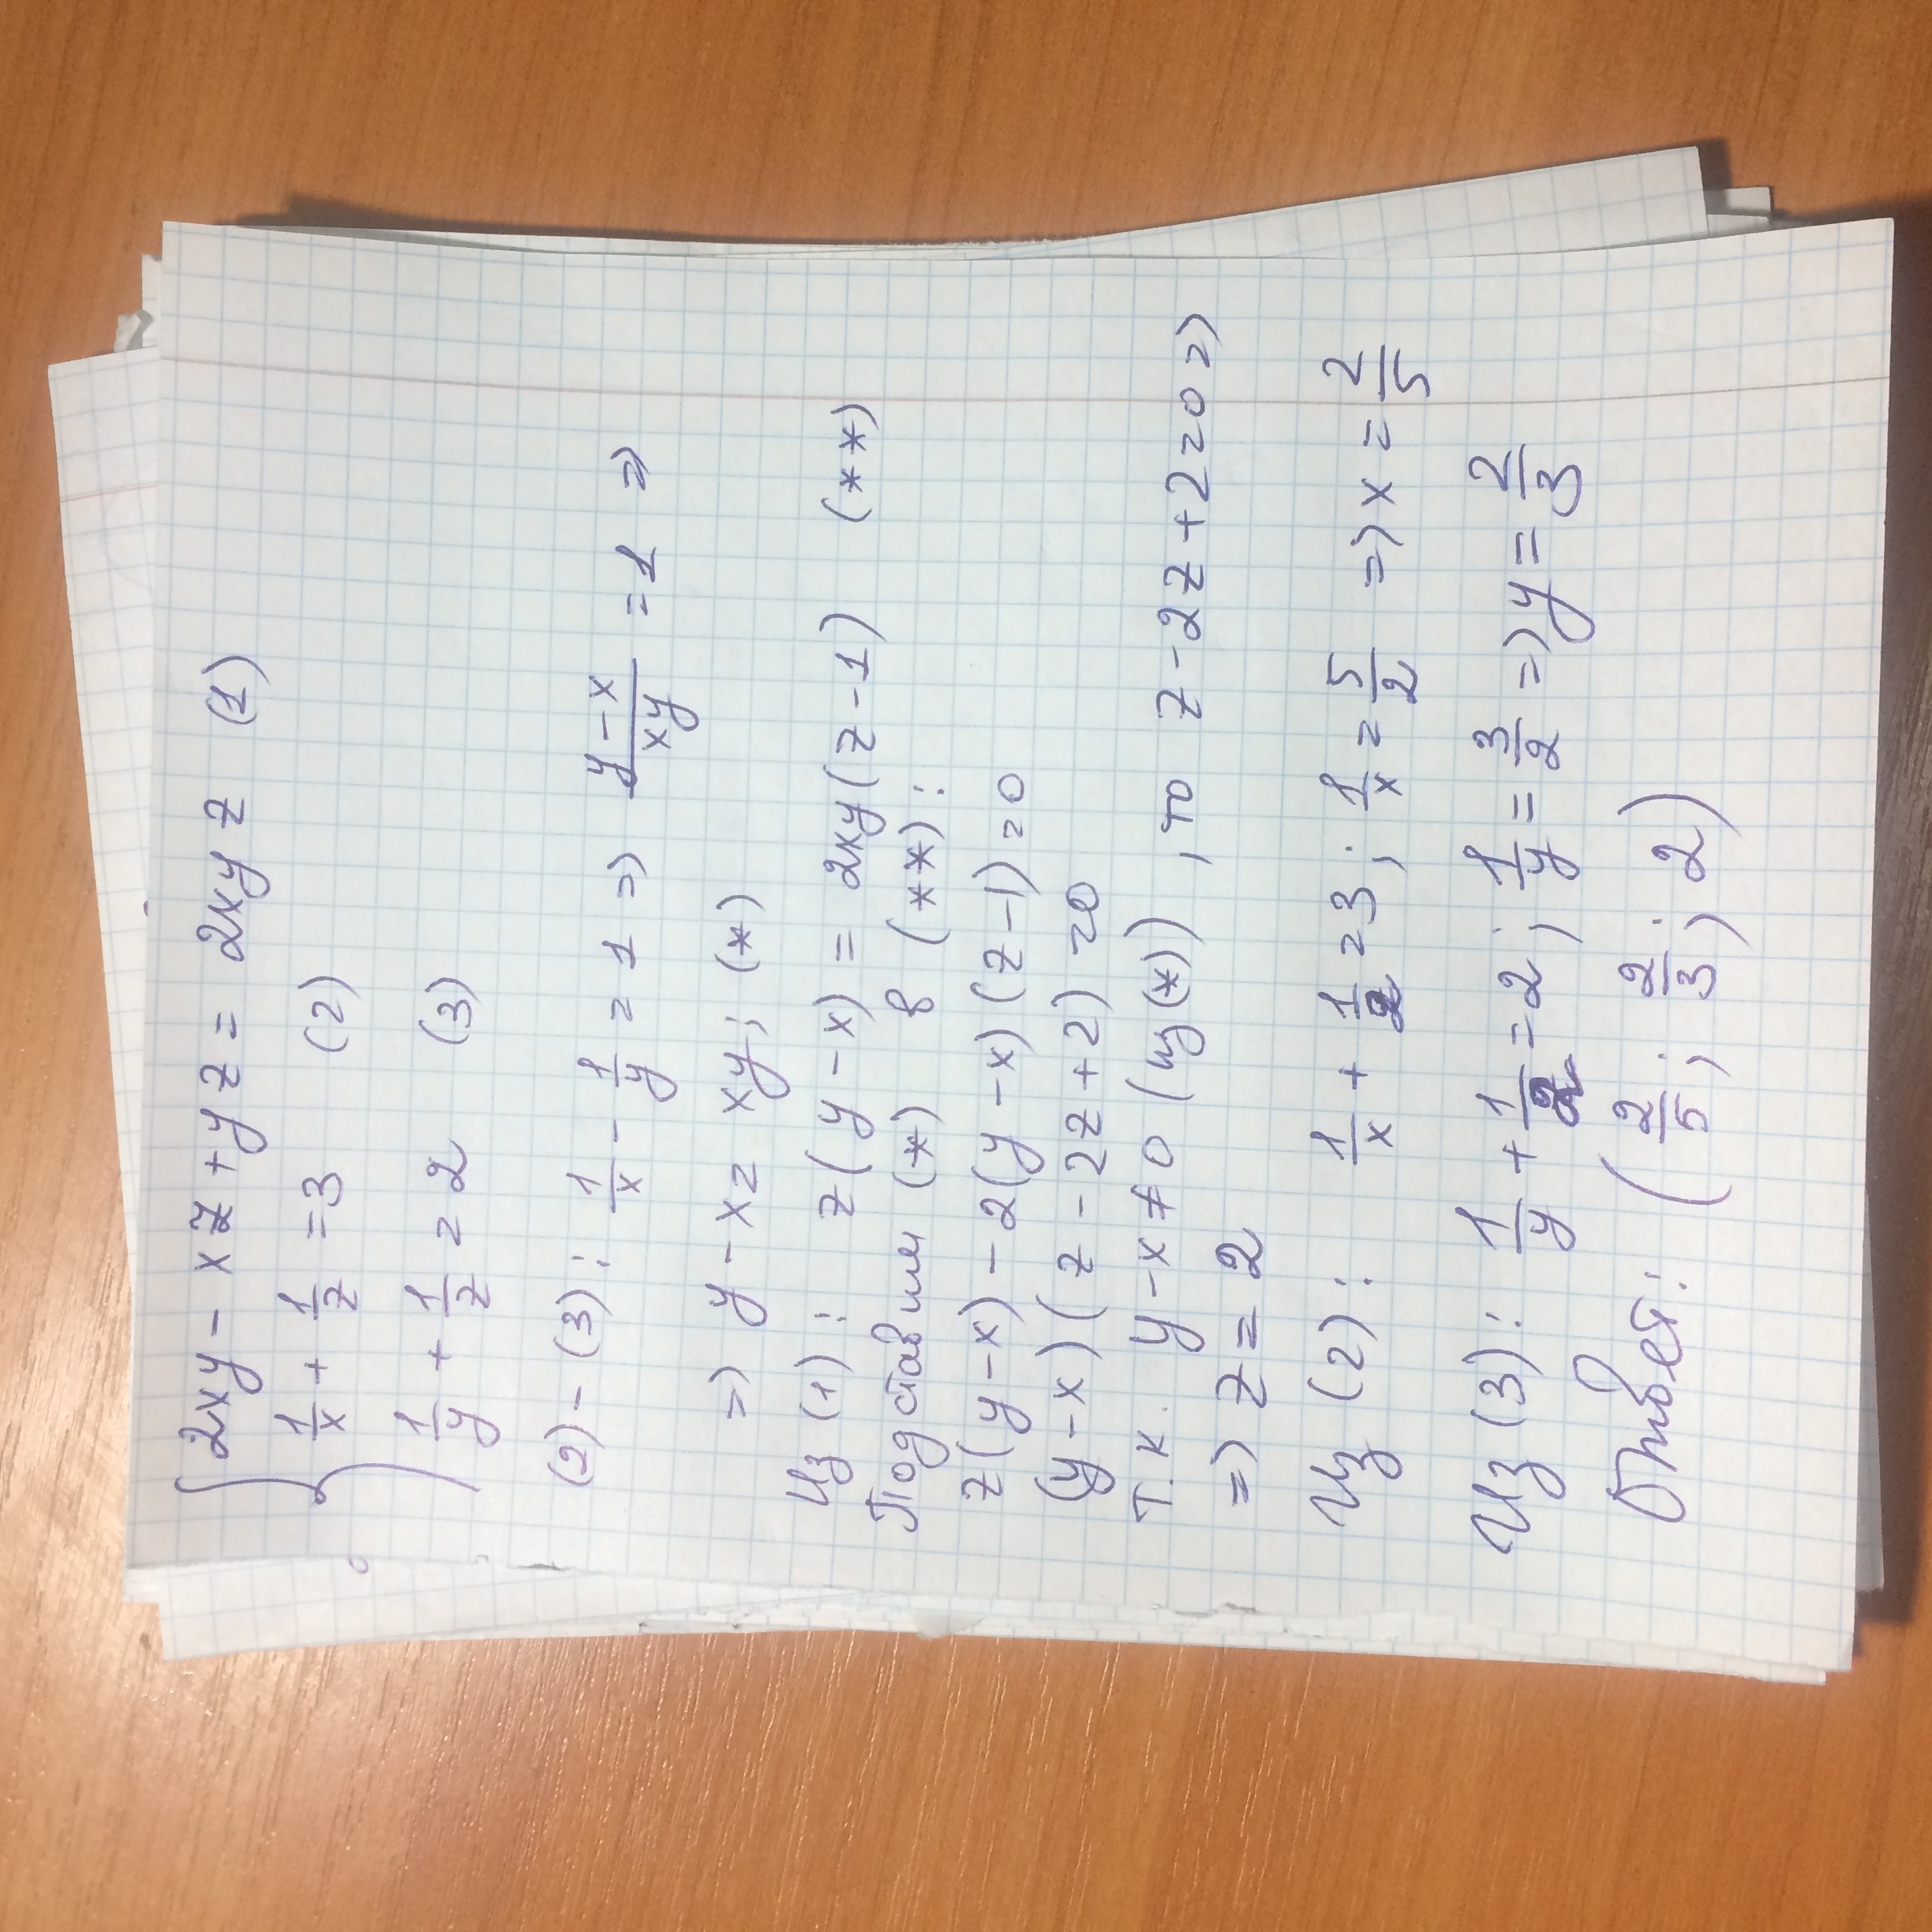 2xy - xz + yz = 2xyz (1)
1/x + 1/z = 3 (2)
1/y + 1/z = 2 (3)
(2) - (3): 1/x - 1/y = 1 => (y-x)/xy = 1 =>
=> y - x = xy; (*)
Из (1): z(y-x) = 2xy(z-1) (**)
Подставим (*) в (**):
z(y-x) - 2(y-x)(z-1) = 0
(y-x)(z - 2z + 2) = 0
т.к. y-x ≠ 0 (из(*)), то z - 2z + 2 = 0 =>
=> z = 2
Из (2): 1/x + 1/2 = 3; 1/x = 5/2 => x = 2/5
Из (3): 1/y + 1/2 = 2; 1/y = 3/2 => y = 2/3
Ответ: (2/5; 2/3; 2)